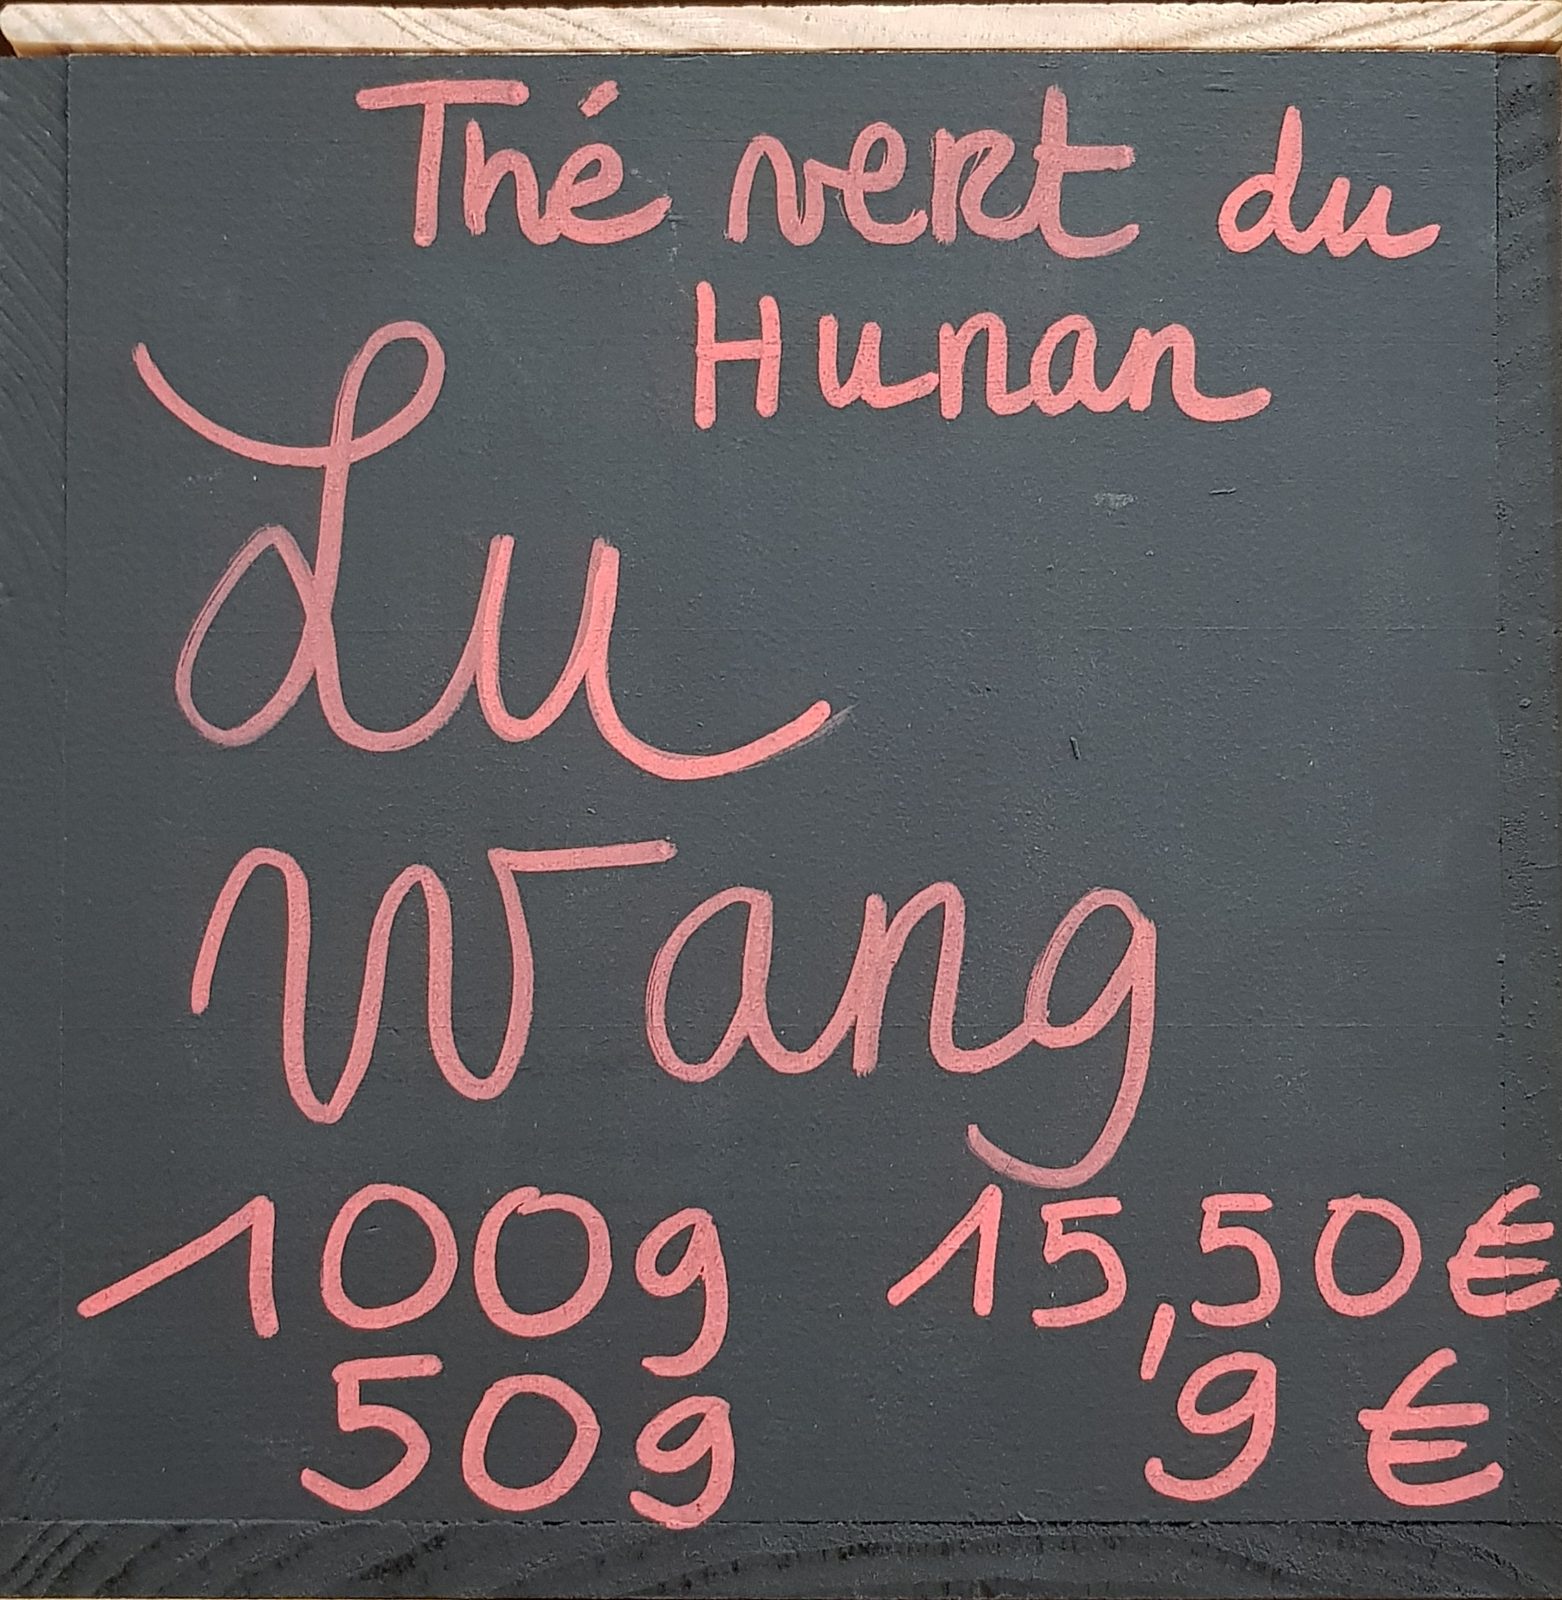 Thé vert du
Hunan
Lu
Wang
100g 15,50€
50g 9€